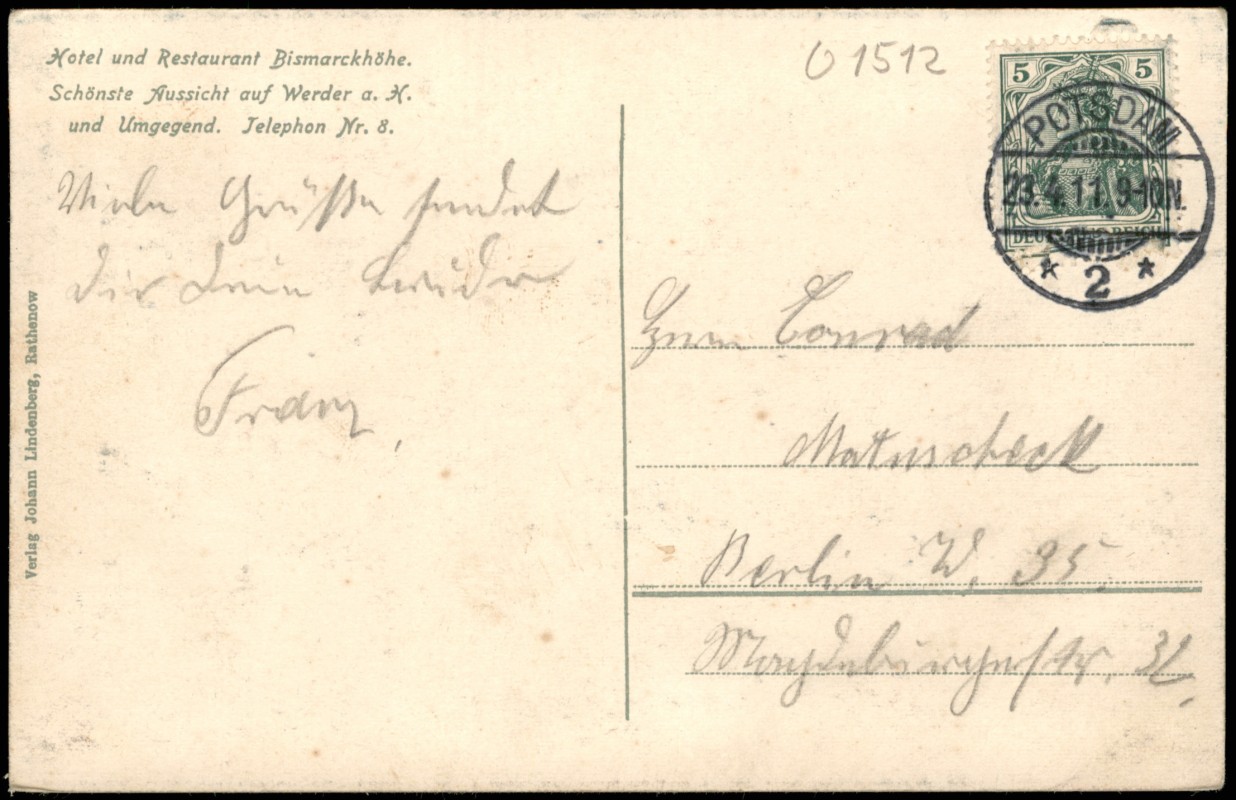 Hotel und Restaurant Bismarckhöhe.
Schönste Aussicht auf Werder a. H.
und Umgegend. Telephon Nr. 8.
Viele Grüße sendet
dir dein Bruder
Franz,
Verlag Johann Lindenberg, Rathenow
1512
5 5
DEUTSCHES REICH
POTSDAM
23.4.11.9-10N.
* 2 *
Conrad
Matuscheck
Berlin W. 35.
Magdeburgerstr. 32.